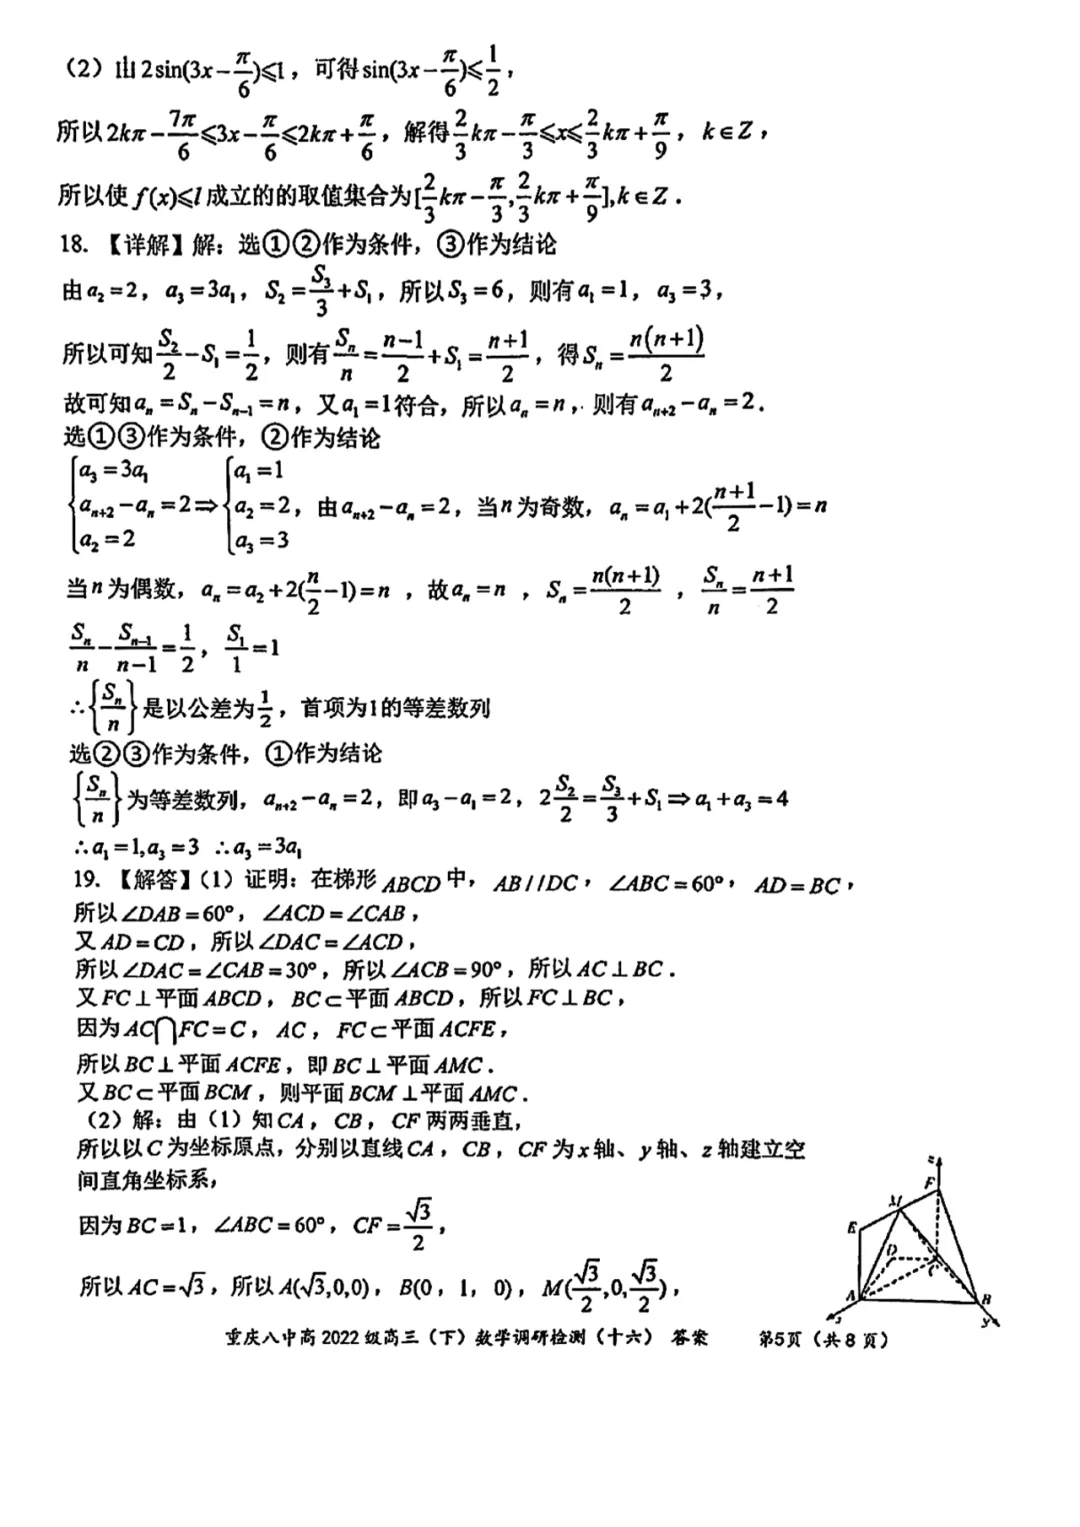 (2) 由 2sin(3x-π/6)⩽1，可得sin(3x-π/6)⩽1/2，
所以2kπ-7π/6⩽3x-π/6⩽2kπ+π/6，解得2/3kπ-π/3⩽x⩽2/3kπ+π/9，k∈Z，
所以使 f(x)⩽l 成立的的取值集合为[2/3kπ-π/3,2/3kπ+π/9],k∈Z．
18. 【详解】解：选①②作为条件，③作为结论
由a₂=2，a₃=3a₁，S₂=S₃/3+S₁，所以S₃=6，则有a₁=1，a₃=3，
所以可知S₂/2-S₁=1/2，则有Sₙ/n=(n-1)/2+S₁=(n+1)/2，得Sₙ=n(n+1)/2
故可知aₙ=Sₙ-Sₙ₋₁=n，又a₁=1符合，所以aₙ=n，则有aₙ₊₂-aₙ=2．
选①③作为条件，②作为结论
{a₃=3a₁ {a₁=1
aₙ₊₂-aₙ=2⇒ a₂=2，由aₙ₊₂-aₙ=2，当n为奇数，aₙ=a₁+2((n+1)/2-1)=n
a₂=2 a₃=3
当n为偶数，aₙ=a₂+2(n/2-1)=n ，故aₙ=n ，Sₙ=n(n+1)/2 ，Sₙ/n=(n+1)/2
Sₙ/n-Sₙ₋₁/(n-1)=1/2，S₁/1=1
∴{Sₙ/n}是以公差为1/2，首项为1的等差数列
选②③作为条件，①作为结论
{Sₙ/n}为等差数列，aₙ₊₂-aₙ=2，即a₃-a₁=2，2S₂/2=S₃/3+S₁⇒a₁+a₃=4
∴a₁=1,a₃=3 ∴a₃=3a₁
19. 【解答】(1) 证明：在梯形 ABCD 中，AB//DC，∠ABC=60°，AD=BC，
所以∠DAB=60°，∠ACD=∠CAB，
又AD=CD，所以∠DAC=∠ACD，
所以∠DAC=∠CAB=30°，所以∠ACB=90°，所以AC⊥BC．
又FC⊥平面ABCD，BC⊂平面ABCD，所以FC⊥BC，
因为AC⋂FC=C，AC，FC⊂平面ACFE，
所以BC⊥平面ACFE，即BC⊥平面AMC．
又BC⊂平面BCM，则平面BCM⊥平面AMC．
(2) 解：由（1）知CA，CB，CF两两垂直，
所以以C为坐标原点，分别以直线CA，CB，CF为x轴、y轴、z轴建立空
间直角坐标系，
因为BC=1，∠ABC=60°，CF=√3/2，
所以AC=√3，所以A(√3,0,0)，B(0，1，0)，M(√3/2,0,√3/2)，
z
F
M
E
D
C
A
B
x
y
重庆八中高2022级高三（下）数学调研检测（十六） 答案 第5页（共8页）